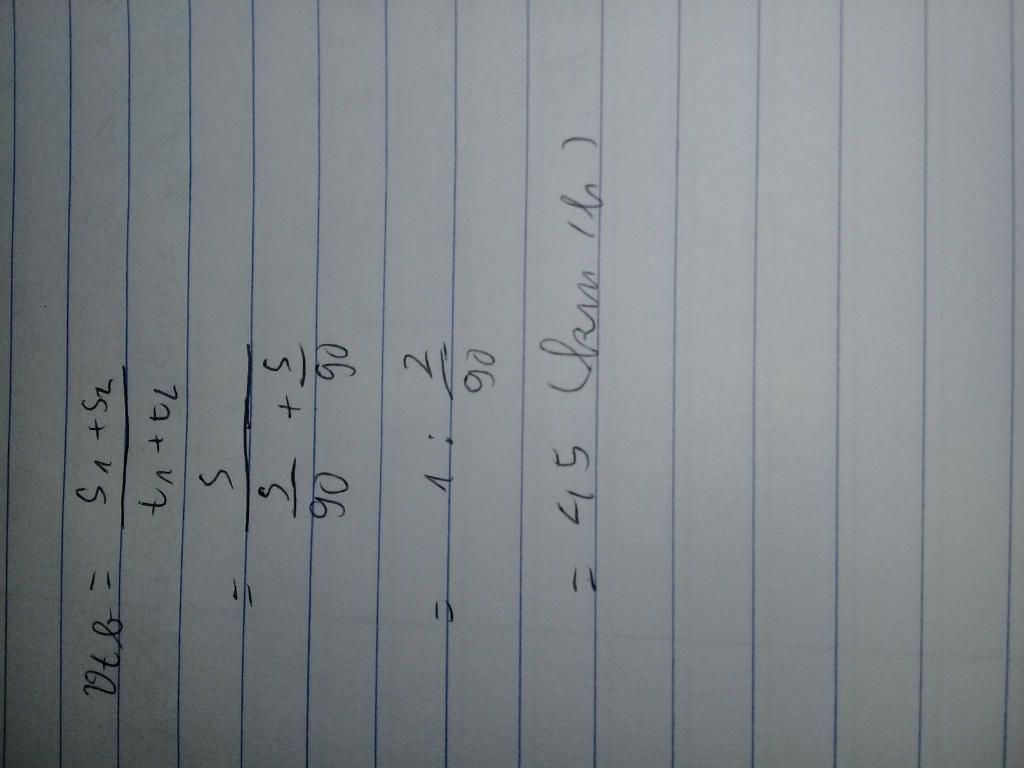 vtb = S1 + S2 / t1 + t2
= S / S/90 + S/90
= 1 : 2/90
= 45 (km/h)